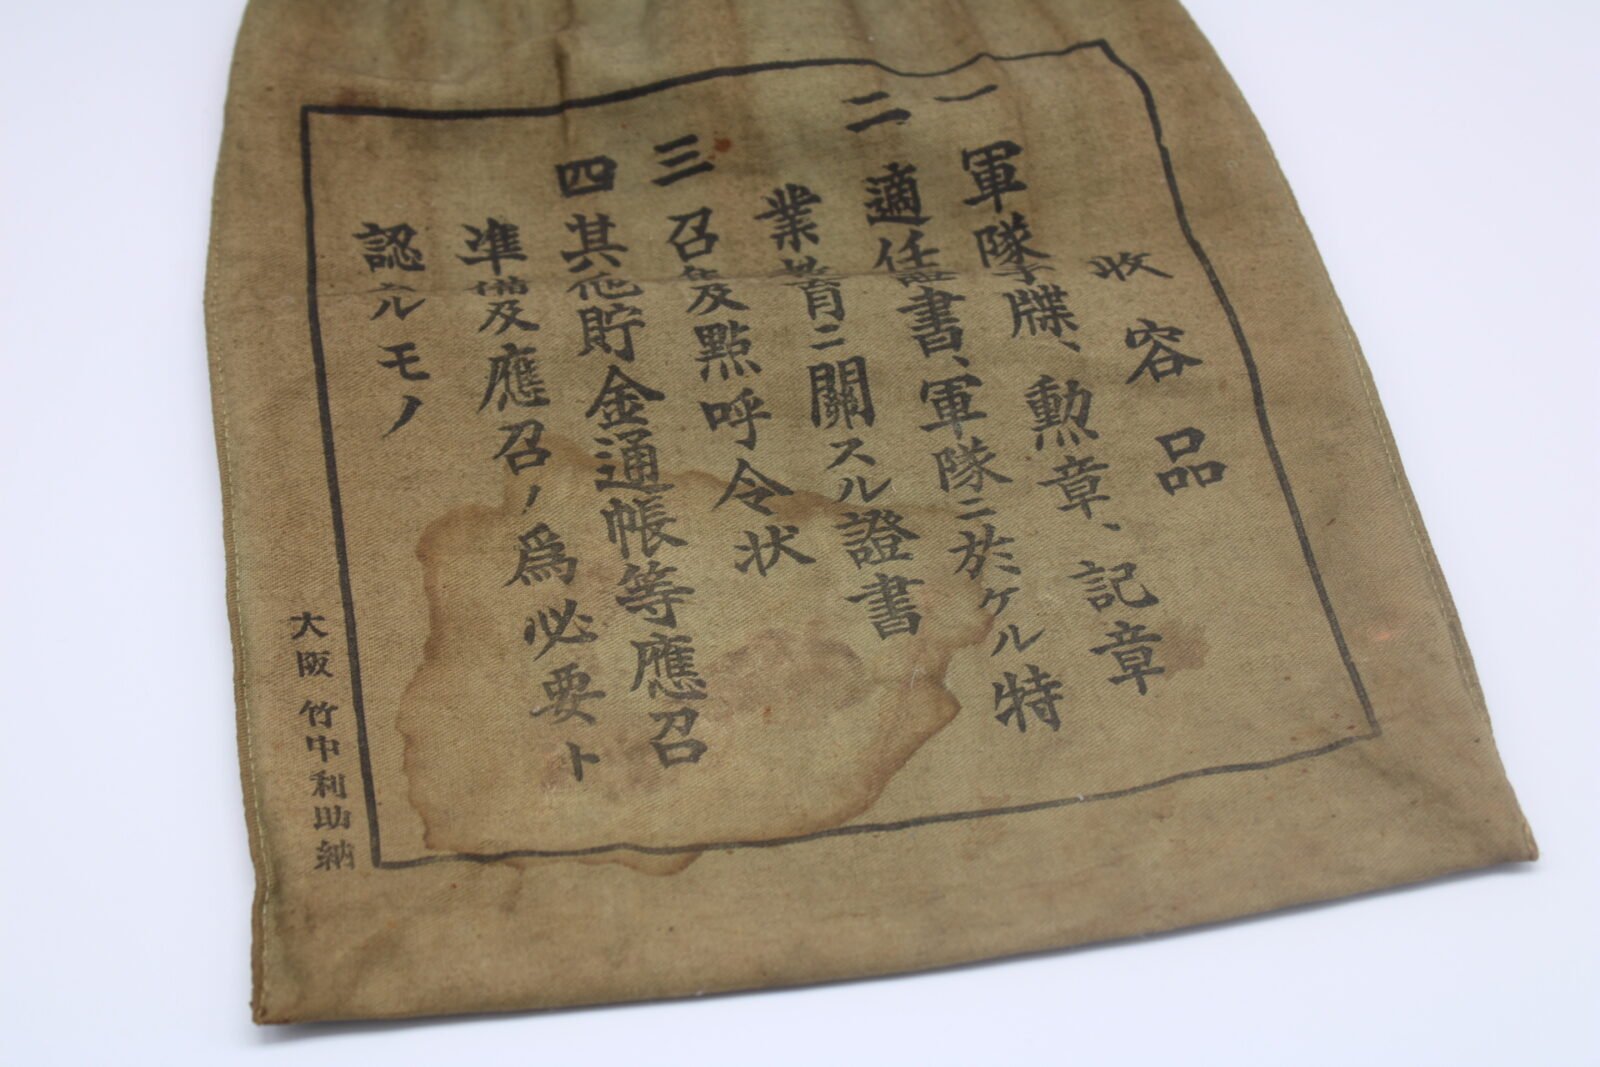 收容品
一 軍隊手牒、勲章、記章
二 適任證書、軍隊ニ於ケル特
業教育ニ關スル證書
三 召集及點呼令状
四 其他貯金通帳等應召
準備及應召ノ爲必要ト
認ムルモノ
大阪 竹中利助納